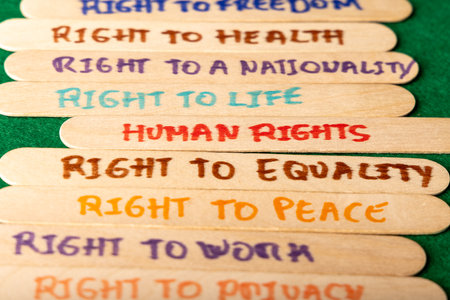 RIGHT TO FREEDOM
RIGHT TO HEALTH
RIGHT TO A NATIONALITY
RIGHT TO LIFE
HUMAN RIGHTS
RIGHT TO EQUALITY
RIGHT TO PEACE
RIGHT TO WORK
RIGHT TO PRIVACY